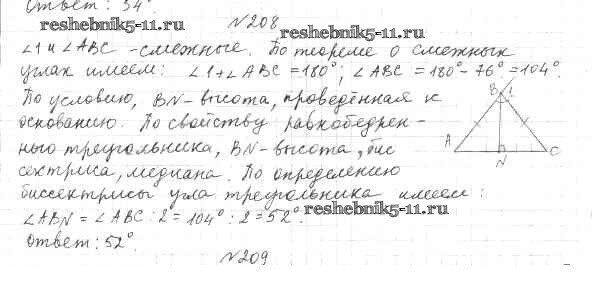 Ответ: 54°
№208
reshebnik5-11.ru
reshebnik5-11.ru
∠1 и ∠ABC - смежные. По теореме о смежных
углах имеем: ∠1+∠ABC=180°; ∠ABC=180°-76°=104°.
По условию, BN-высота, проведённая к
основанию. По свойству равнобедрен-
ного треугольника, BN-высота, бис
сектриса, медиана. По определению
биссектрисы угла треугольника имеем:
∠ABN=∠ABC:2=104°:2=52°.
reshebnik5-11.ru
Ответ: 52°.
№209
B
1
A
N
C